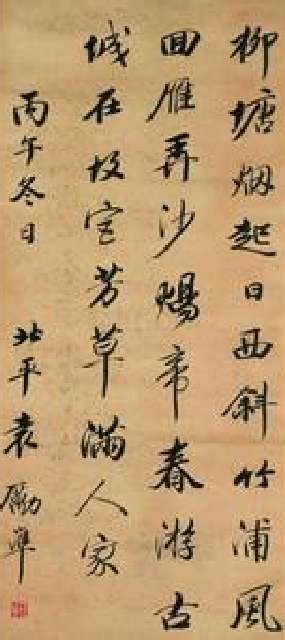 柳塘烟起日西斜竹浦風
回雁弄沙煬帝春游古
城在故宫芳草滿人家
丙午冬日 北平袁勵準